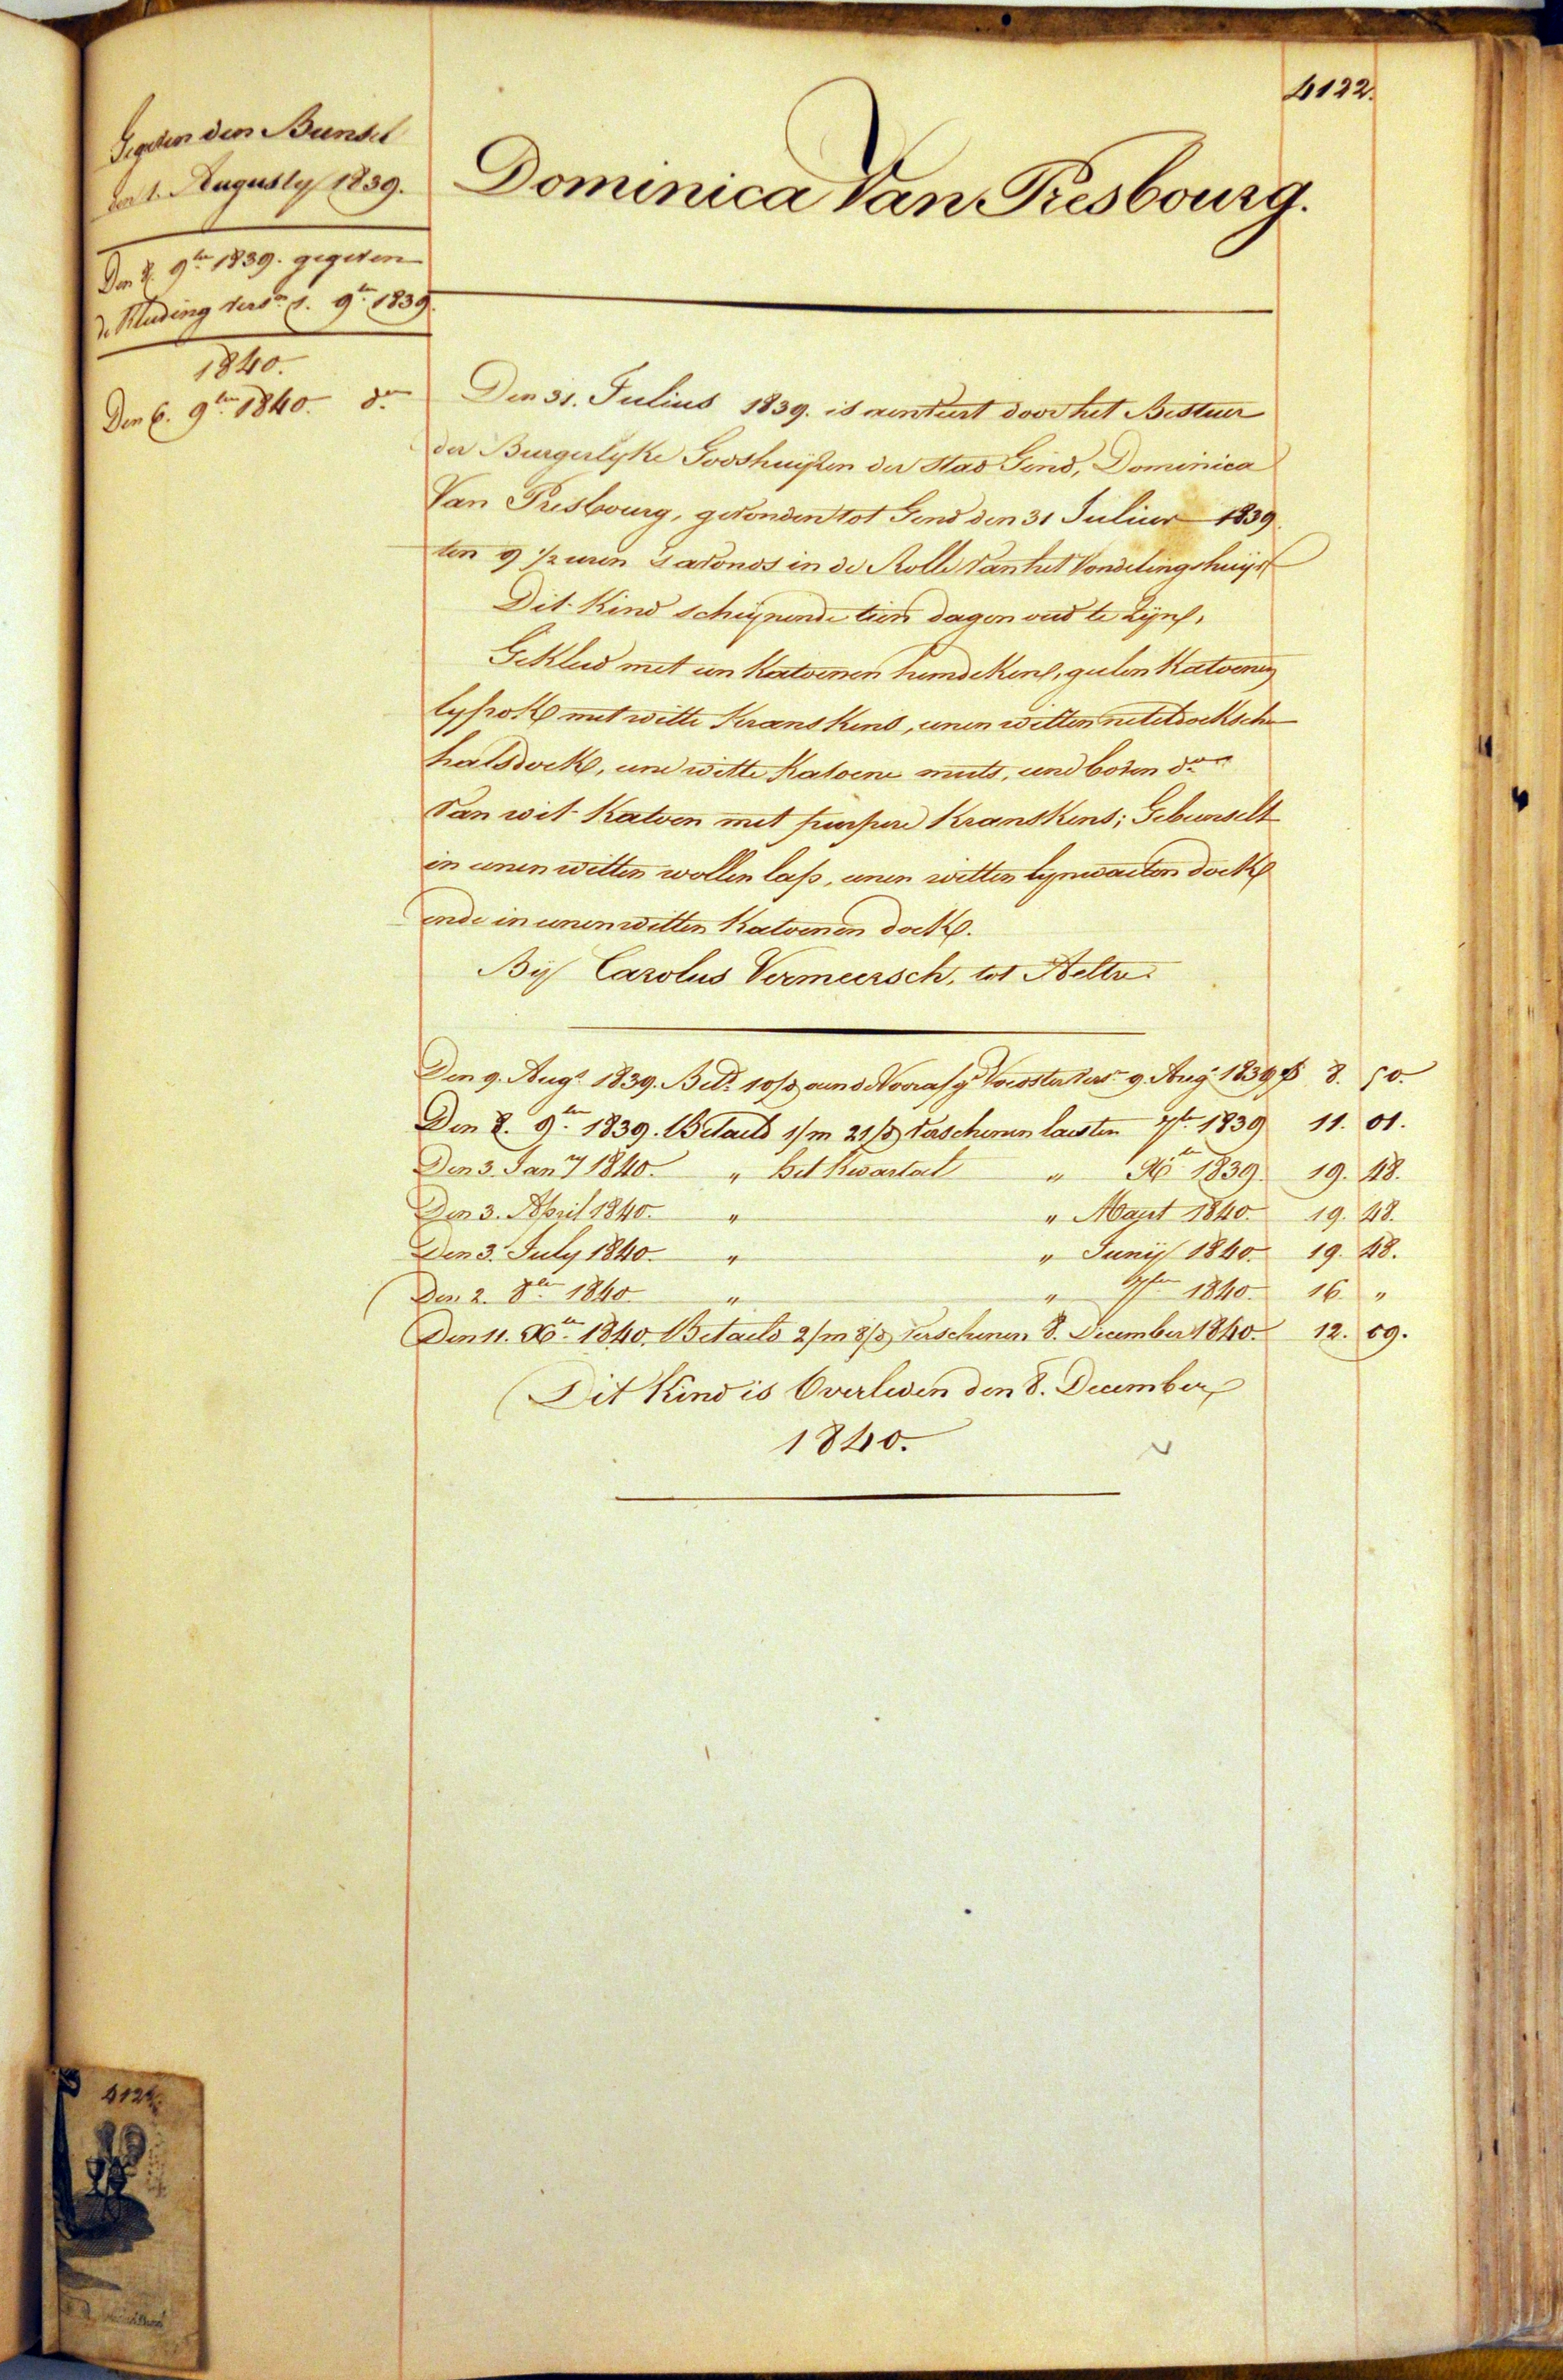 4122.
Gegeven den Bunsel
den 1. Augusty 1839.
Den 8. 9ber 1839. gegeven
de Kleeding versn 1. 9ber 1839.
1840.
Den 6. 9ber 1840. do
Dominica Van Presbourg.
Den 31. Julius 1839. is aenveert door het Bestuer
der Burgerlyke Godshuyzen der Stad Gend, Dominica
Van Presbourg, gevonden tot Gend den 31 Julius 1839.
ten 9 1/2 uren s'avonds in de Rolle van het Vondelingshuys
Dit Kind schynende tien dagen oud te Zyn,
Gekleed met een Katoenen hemdeken, geelen Katoenen
lyfrok met witte Kranskens, eenen witten neteldoeksche
halsdoek, eene witte Katoene muts, eene boven do
van wit Katoen met purpere Kranskens; Gebunselt
in eenen witten wollen lap, eenen witten lynwaeten doek
ende in eenen witten Katoenen doek.
By Carolus Vermeersch, tot Aeltre.
Den 9. Augt 1839. Betd 10/d aen de Voedster versn 9. Augt 1839 8. 50.
Den 8. 9ber 1839. Betaeld 1/m 21/d verschenen laesten 7ber 1839 11. 01.
Den 3. Jany 1840. " het Kwartael " Xber 1839. 19. 48.
Den 3. April 1840. " " Maert 1840. 19. 48.
Den 3. July 1840. " " Juny 1840. 19. 48.
Den 2. 8ber 1840 " " 7ber 1840. 16. "
Den 11. Xber 1840. Betaeld 2/m 8/d verschenen 8. December 1840. 12. 09.
Dit Kind is Overleden den 8. December
1840.
4122.